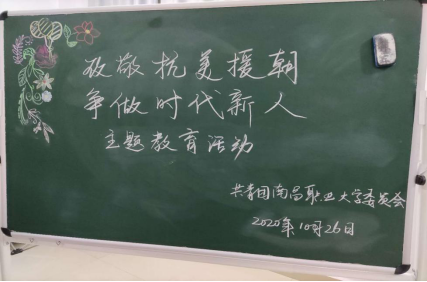 致敬抗美援朝
争做时代新人
主题教育活动
共青团南昌职业大学委员会
2020年10月26日